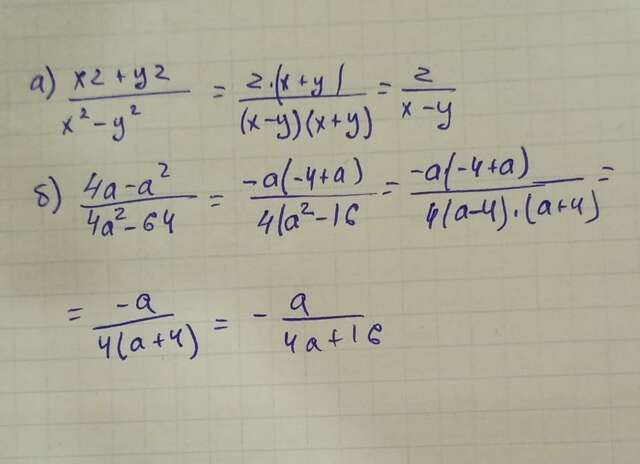 а) (x2+y2)/(x²-y²) = (2·(x+y))/((x-y)(x+y)) = 2/(x-y)
б) (4a-a²)/(4a²-64) = (-a(-4+a))/(4(a²-16) = (-a(-4+a))/(4(a-4)·(a+4)) =
= (-a)/(4(a+4)) = - a/(4a+16)